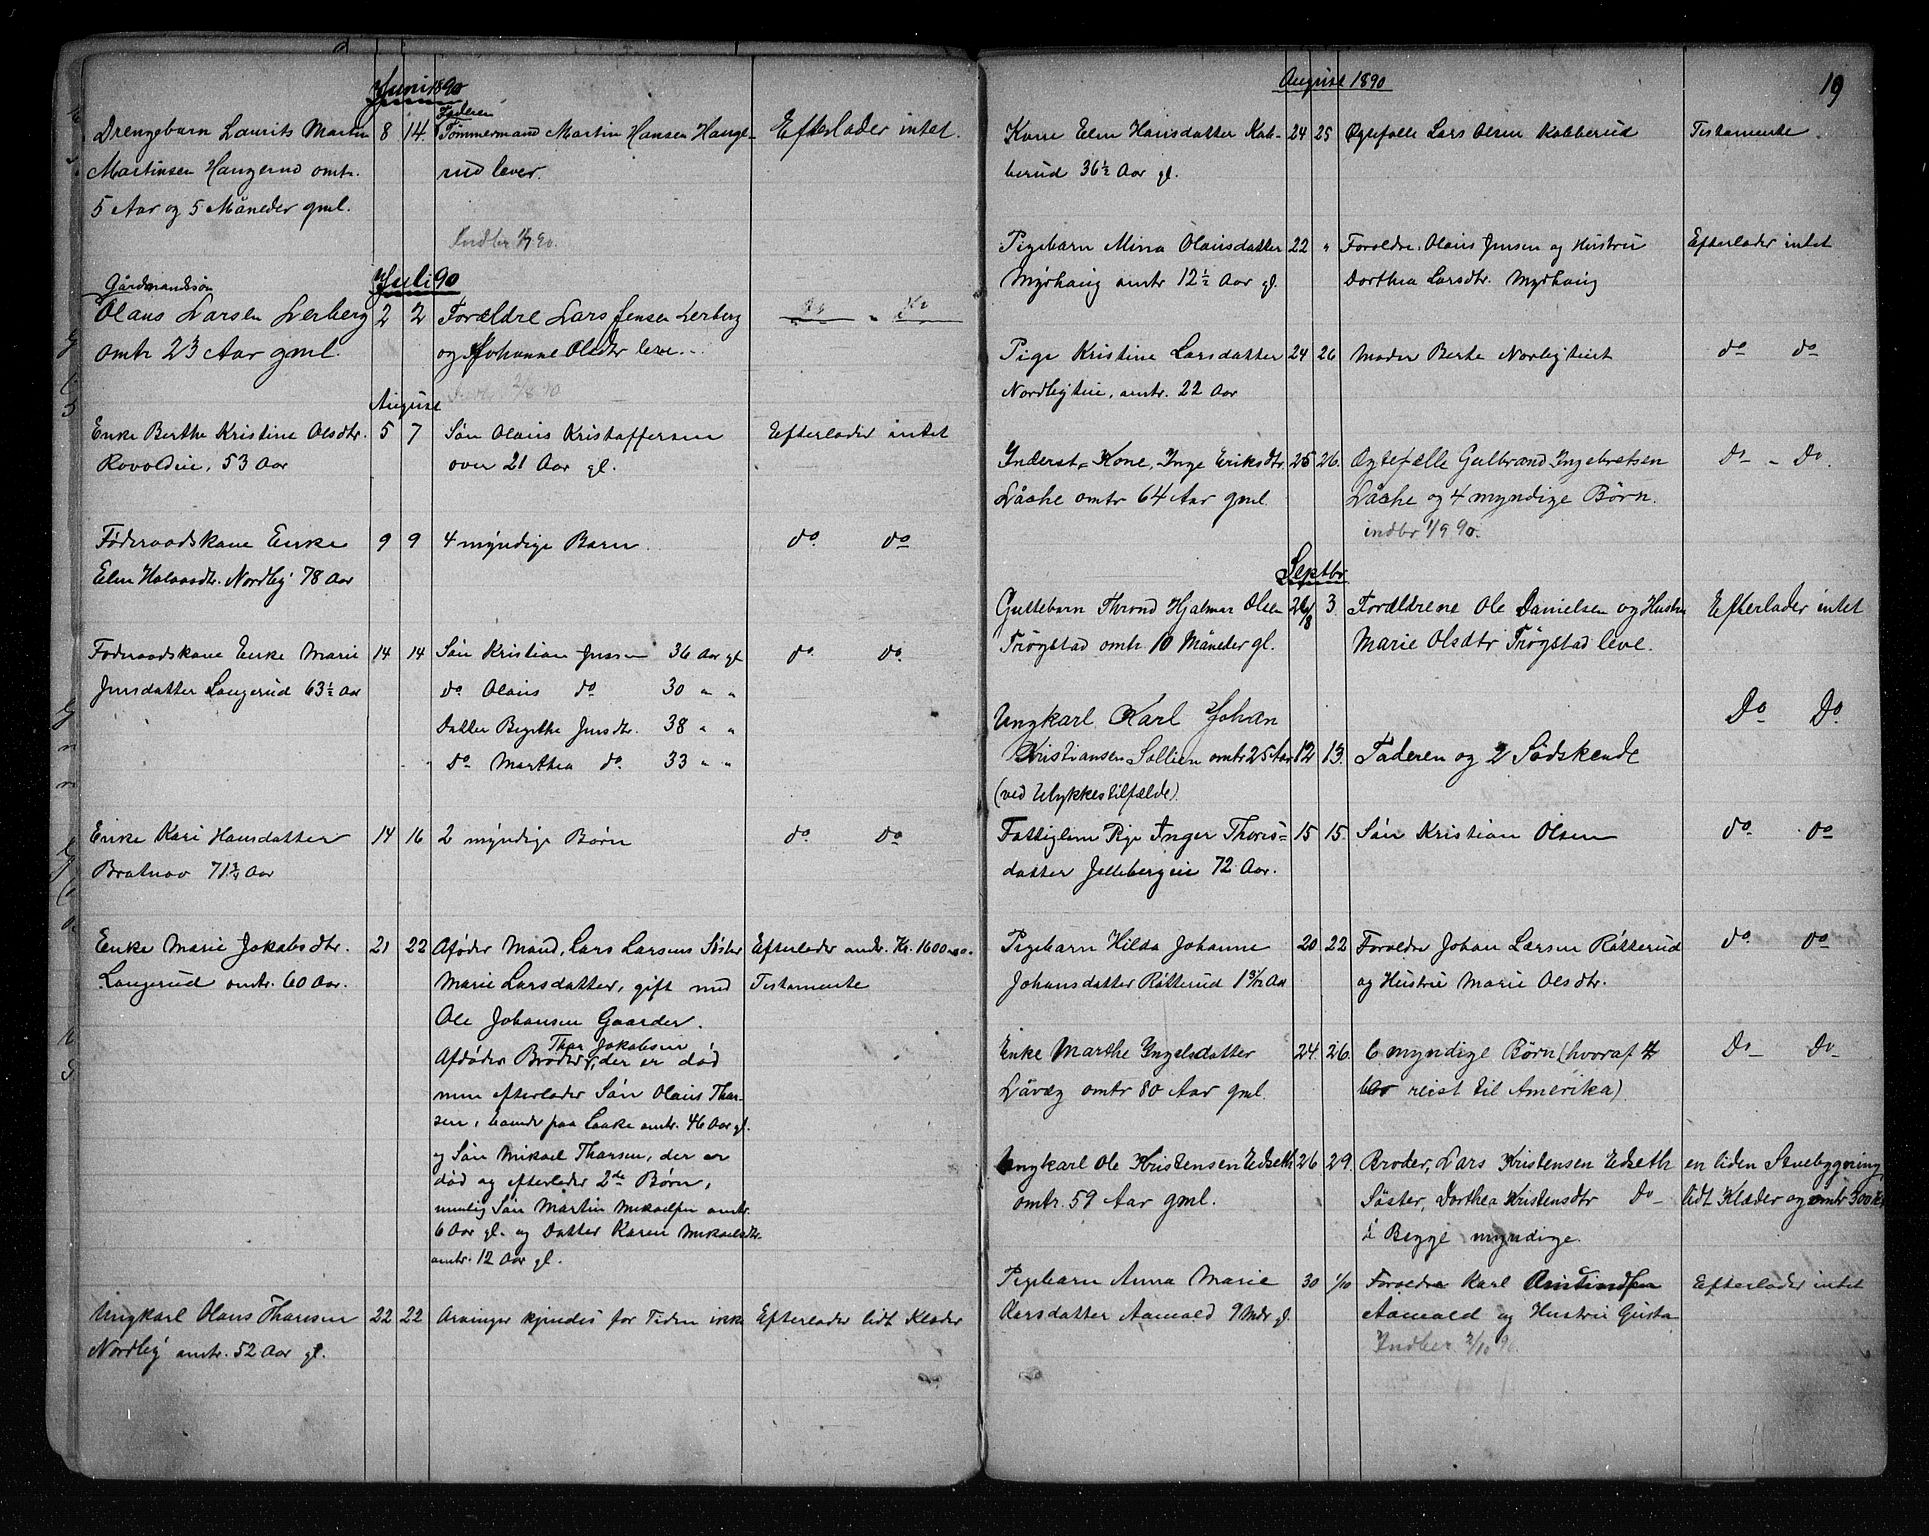 Juni 1890
Drengebarn Laurits Martin 8 14. Faderen Tømmermand Martin Hansen Hauge- Efterlader intet.
Martinsen Haugerud omtr. rud lever.
5 Aar og 5 Måneder gml.
Indbr 1/7 90.
Juli 90
Gårdmandssøn
Olaus Larsen Lerberg 2 2 Forældre Lars Jensen Lerberg Do - Do
omtr 23 Aar gml. og Johanne Olsdtr leve.
2/8 90
August
Enke Berthe Kristine Olsdtr. 5 7 Søn Olaus Kristoffersen Efterlader intet
53 Aar over 21 Aar gl.
Føderaadskone Enke 9 9 4 myndige Børn. do. do
Elen Halvorsdtr. Nordby 78 Aar
Føderaadskone Enke Marie 14 14 Søn Kristian Jensen 36 Aar gl do. do.
Jensdatter Langerud 63½ Aar do Olaus do 30 " "
Datter Birgithe Jensdtr. 38 " "
do Marthea do. 33 " "
Enke Kari Hansdatter 14 16 2 myndige Børn do. do
71¾ Aar
Enke Marie Jakobsdtr. 21 22 Afdødes Mand, Lars Larsens Søster Efterlader omtr. Kr. 1600.00.
Langerud omtr. 60 Aar. Marie Larsdatter, gift med Testamente
Ole Johansen Gaarder.
Thor Jakobsen
Afdødes Broder, der er død
men efterlader Søn Olaus Thor-
sen, boende paa Laake omtr. 46 Aar gl.
og Søn Mikael Thorsen, der er
død og efterlader 2de Børn,
nemlig Søn Martin Mikaelsen omtr.
6 Aar gl. og Datter Karen Mikaelsdtr.
omtr. 12 Aar gl.
Ungkarl Olaus Thoresen 22 22 Arvinger kjendes for Tiden ikke Efterlader lidt Klæder
Nordby omtr. 52 Aar gl.
August 1890
19
Kone Elen Hansdatter Kob- 24 25 Ægtefælle Lars Olsen Kobberud Testamente.
berud 36½ Aar gl.
Pigebarn Mina Olausdatter 22 " Forældre. Olaus Jensen og Hustru Efterlader intet
Myrhaug omtr 12½ Aar gl. Dorthea Larsdtr. Myrhaug
Pige Kristine Larsdatter 24 26 Moder Berte do do
omtr. 22 Aar
Inderst-Kone, Inge Eriksdtr. 25 26. Ægtefælle Gulbrand Ingebretsen Do - Do.
Låche omtr 64 Aar gml. Låche og 4 myndige Børn.
indbr 1/9 90.
Septbr
Guttebarn Thrond Hjalmar Olsen 26/8 3. Forældrene Ole Danielsen og Hustru Efterlader intet
Trøgstad omtr. 10 Måneder gl. Marie Olsdtr Trøgstad leve.
Ungkarl Karl Johan Do Do
Kristiansen Sollien omtr 25 Aar 12 13. Faderen og 2 Sødskende
(ved Ulykkestilfælde)
Fattiglem Pige Inger Thores- 15 15. Søn Kristian Olsen do. do
datter 72 Aar.
Pigebarn Hilda Johanne 20 22 Forældre Johan Larsen Råtterud do. do
Johansdatter Råtterud 1 9/12 Aar og Hustru Marie Olsdtr.
Enke Marthe Ingelsdatter 24. 26. 6 myndige Børn (hvoraf 4 Do - Do
Låvæg omtr 80 Aar gml. har reist til Amerika).
Ungkarl Ole Kristensen Edseth 26 29. Broder, Lars Kristensen Edseth en liden Stuebygning,
omtr. 59 Aar gml. Søster, Dorthea Kristensdtr Do - lidt Klæder og omtr 300 Kr
Begge myndige.
Pigebarn Anna Marie 30 1/10 Forældre Karl Aamundsen Efterlader intet
Karsdatter Aamold 9 Mdr gl. Aamold og Hustru Gusta
Indber 2/10 90.